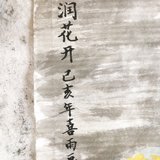 润花开己亥年喜雨